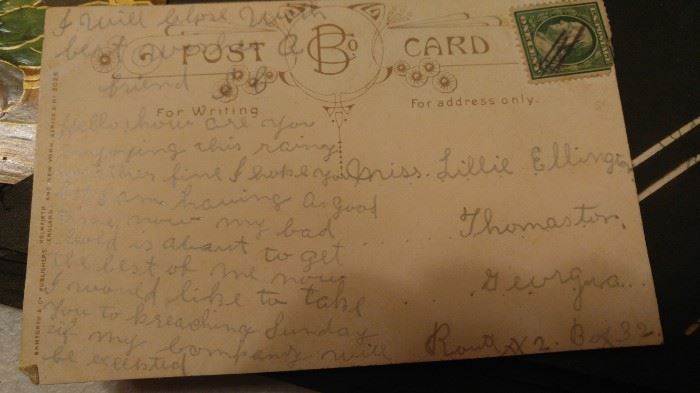 I Will Close With
best wishes A
friend
POST CARD
B Co
For Writing
For address only.
Hello how are you
enjoying this rainy
this fine I hope you
but I am having a good
time now my bad
cold is about to get
the best of me now
I would like to take
you to preaching Sunday
if my company will
be excepted
Miss. Lillie Ellington
Thomaston,
Georgia
Route # 2. Box 32.
BAMFORTH & CO PUBLISHERS HOLMFIRTH AND NEW YORK
ENGLAND